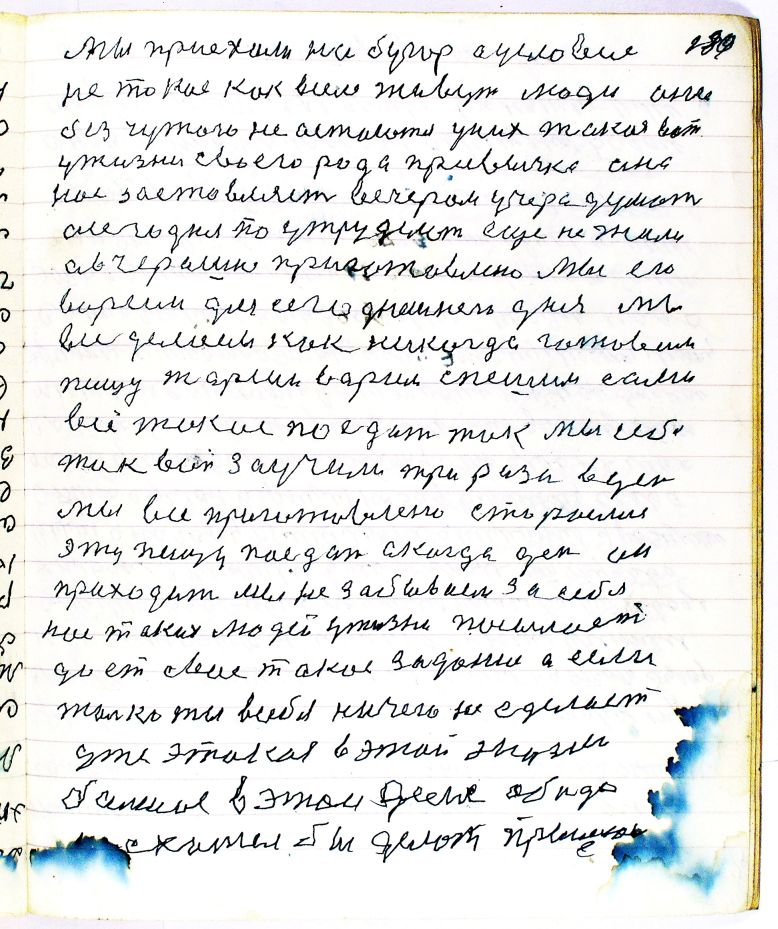 189
Мы приехали на бугор а условие
не такое как все живут люди они
без чужого не остаются у них такая вот
у жизни своего рода привычка она
нас заставляет вечером учера думат
а сегодня по утру делат еще не жали
а вчерашню приготовлено мы его
варим для сегоднешнего дня мы
все делаем как никогда готовим
пищу жарим варим спешим сами
всё такое поедат так мы себя
так всех заучили три раза в ден
мы все приготовлено стараемся
эту пищу поедат а когда ден он
приходит мы не забываем за себя
нас таких людей у жизни посылает
дает свое такое задание а если
только ты в себя ничего не сделает
уже этакая в этой жизни
большое в этом деле обида
хотел бы делат